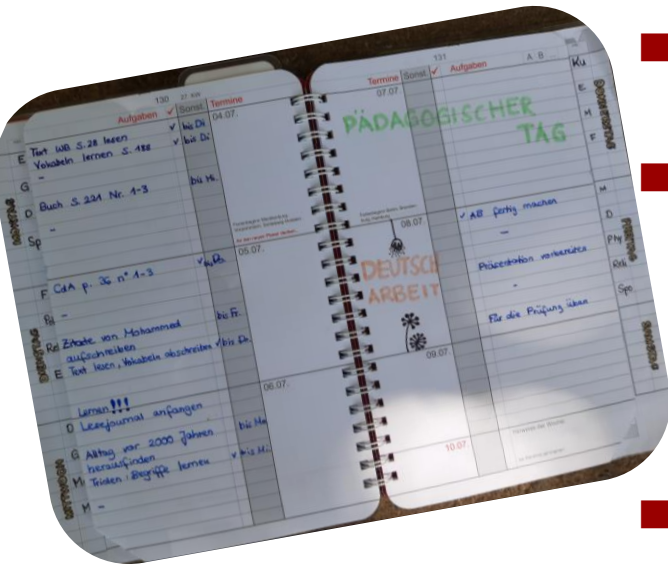 130 27. KW
Aufgaben ✓ Sonst. Termine
E Text WB S. 28 lesen ✓ bis Di
Vokabeln lernen S. 188 ✓ bis Di
-
G Buch S. 221 Nr. 1-3 bis Mi.
D -
Sp
04.07.
F CdA p. 36 n° 1-3 ✓ bis Do.
-
Zitate von Mohammed bis Fr.
aufschreiben
E Text lesen, Vokabeln abschreiben ✓ bis Do.
05.07.
Lernen!!!
D Lesejournal anfangen
G Alltag vor 2000 Jahren
herausfinden
Triolen: Begriffe lernen ✓ bis Mi.
M -
06.07.
131
Termine Sonst. ✓ Aufgaben A B
07.07
PÄDAGOGISCHER
TAG
Ku
E
M
F
DONNERSTAG
08.07.
DEUTSCH
ARBEIT
✓ AB fertig machen
-
Präsentation vorbereiten
-
Für die Prüfung üben
M
D
Phy
Reli
Spo
FREITAG
09.07.
10.07